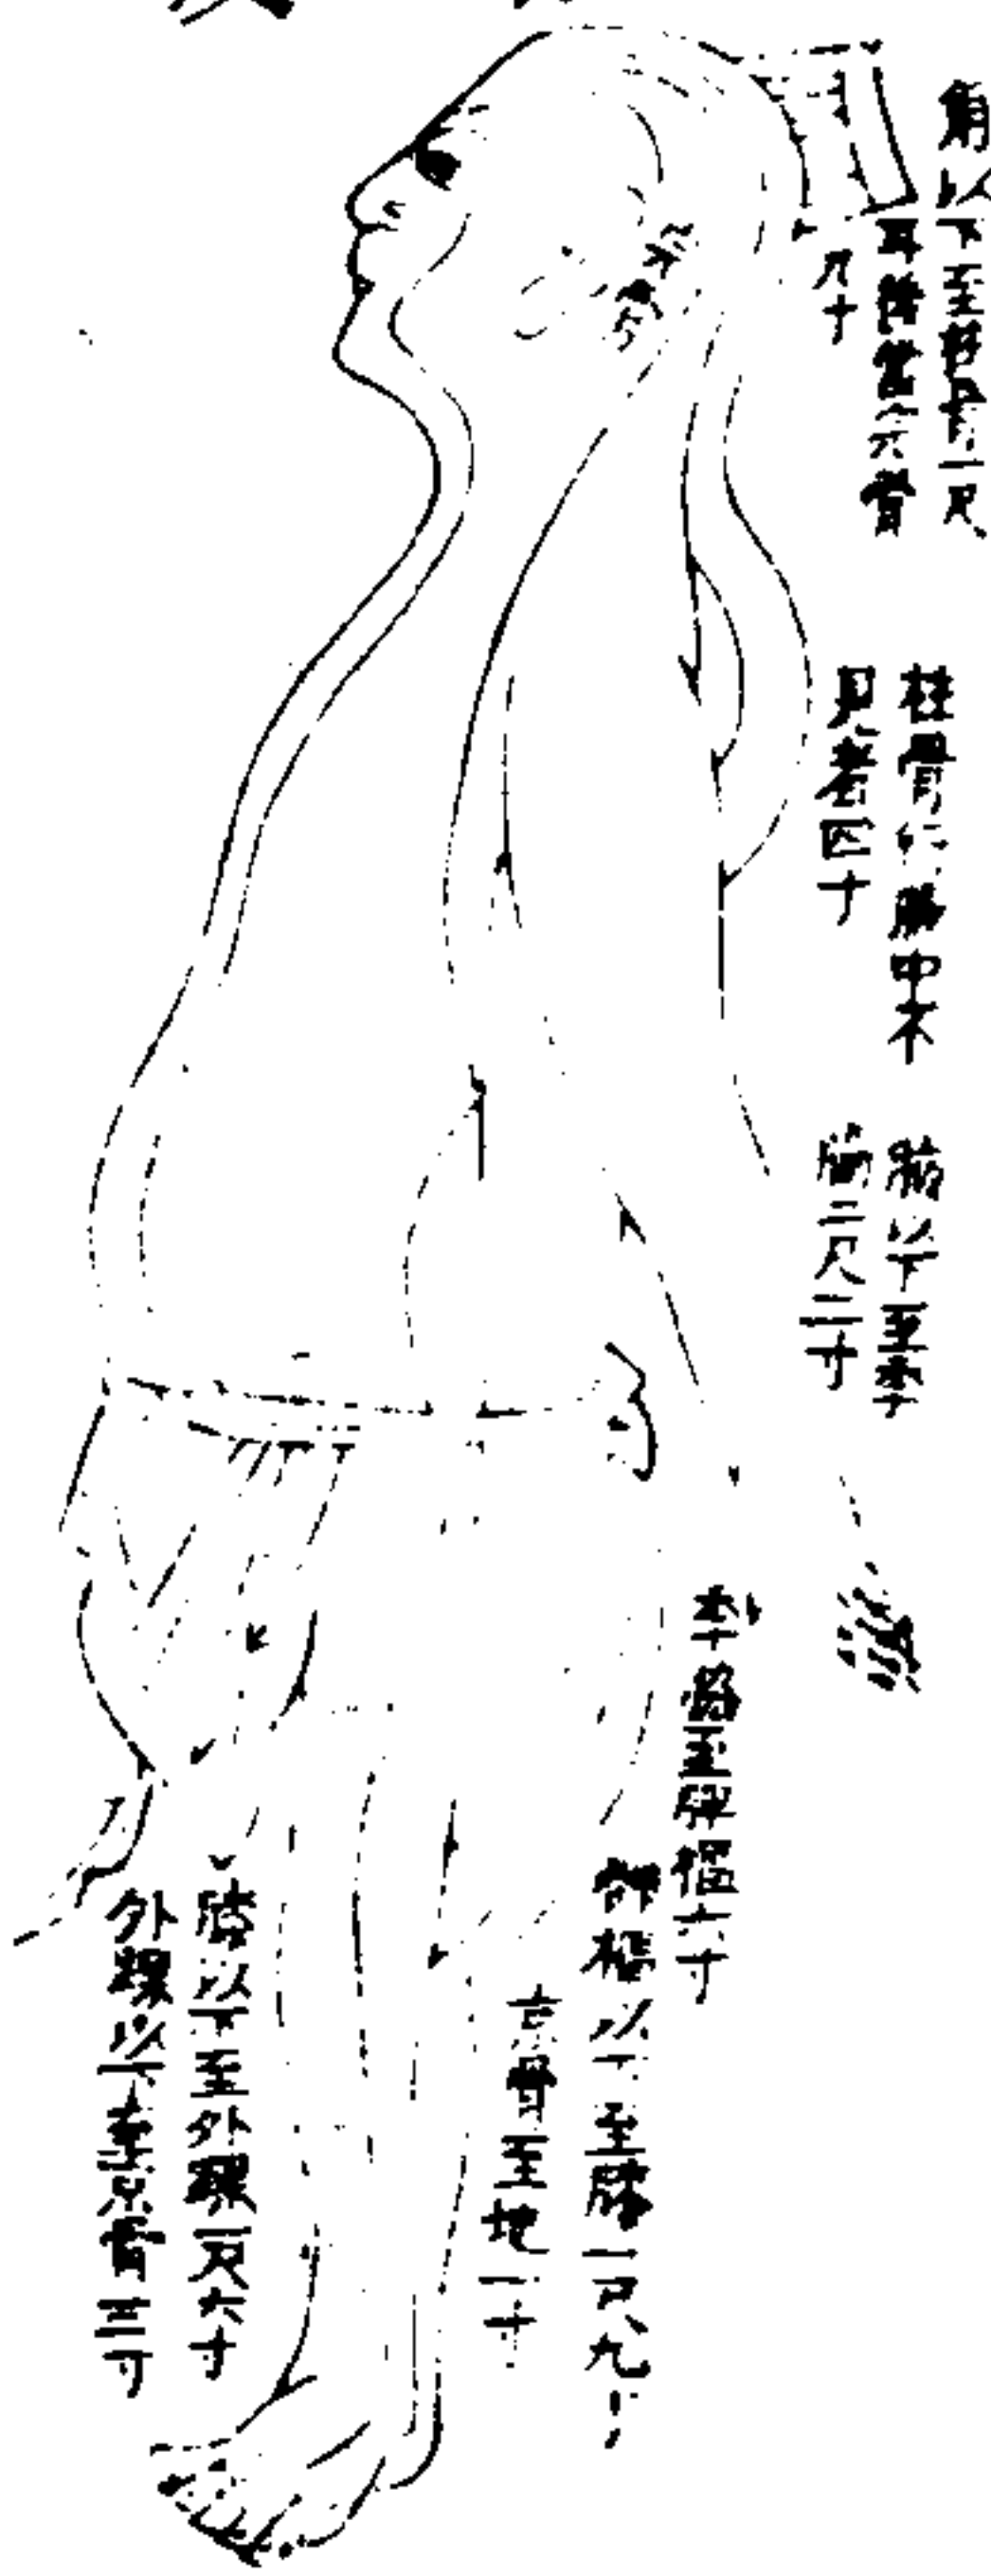 角以下至柱骨一尺
耳後當完骨
九寸
完骨
柱骨行腋中不
見者四寸
腋以下至季
脇一尺二寸
季脇至髀樞六寸
髀樞以下至膝一尺九
京骨至地一寸
膝以下至外踝一尺六寸
外踝以下至京骨三寸